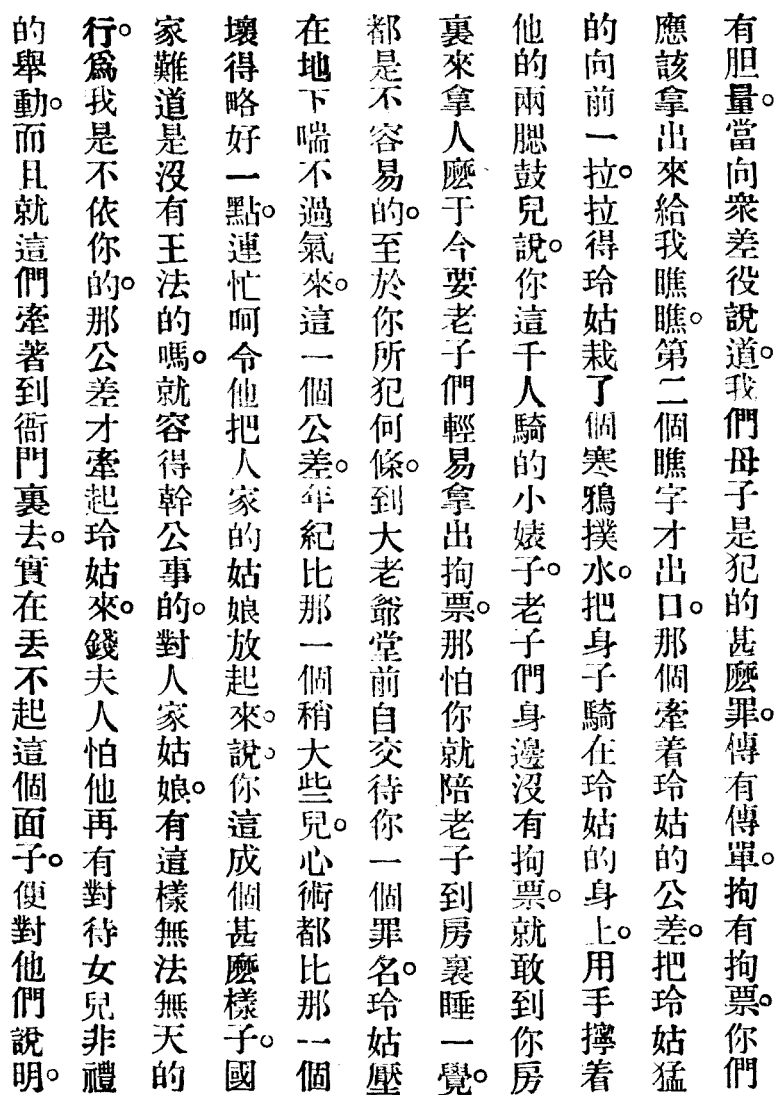 有胆量。當向衆差役說道。我們母子是犯的甚麽罪。傳有傳單。拘有拘票。你們
應該拿出來給我瞧瞧。第二個瞧字才出口。那個牽着玲姑的公差。把玲姑猛
的向前一拉。拉得玲姑栽了個寒鴉撲水。把身子騎在玲姑的身上。用手擰着
他的兩腮鼓兒說。你這千人騎的小婊子。老子們身邊沒有拘票。就敢到你房
裏來拿人麽于今要老子們輕易拿出拘票。那怕你就陪老子到房裏睡一覺。
都是不容易的。至於你所犯何條。到大老爺堂前自交待你一個罪名。玲姑壓
在地下喘不過氣來。這一個公差。年紀比那一個稍大些兒。心術都比那一個
壞得略好一點。連忙呵令他把人家的姑娘放起來。說。你這成個甚麽樣子。國
家難道是沒有王法的嗎。就容得幹公事的。對人家姑娘。有這樣無法無天的
行。爲我是不依你的。那公差才牽起玲姑來。錢夫人怕他再有對待女兒非禮
的舉動。而且就這們牽著到衙門裏去。實在丟不起這個面子。便對他們說明。